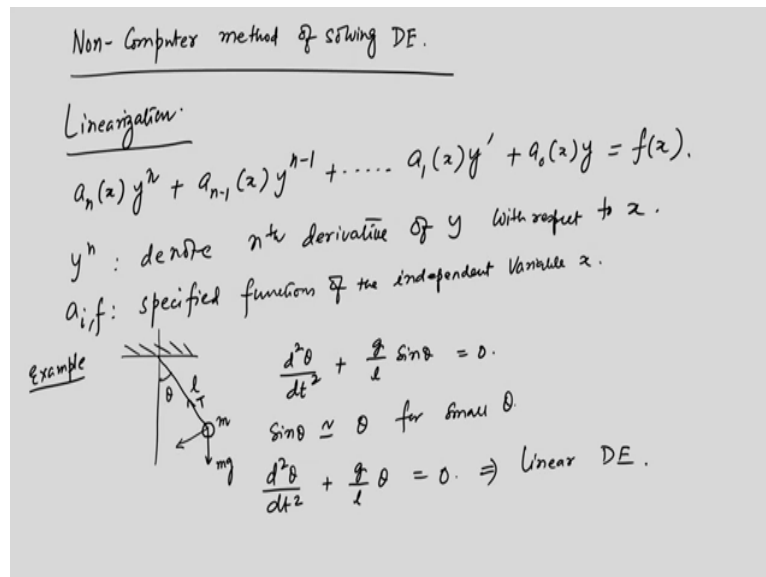 Non-Computer method of solving DE.
Linearization.
aₙ(x) yⁿ + aₙ₋₁(x) yⁿ⁻¹ + ..... a₁(x)y′ + a₀(x)y = f(x).
yⁿ : denote nᵗʰ derivative of y with respect to x.
aᵢ,f: specified functions of the independent variable x.
Example
θ l T m mg
d²θ/dt² + g/l Sinθ = 0.
Sinθ ≃ θ for small θ.
d²θ/dt² + g/l θ = 0. ⇒ linear DE.